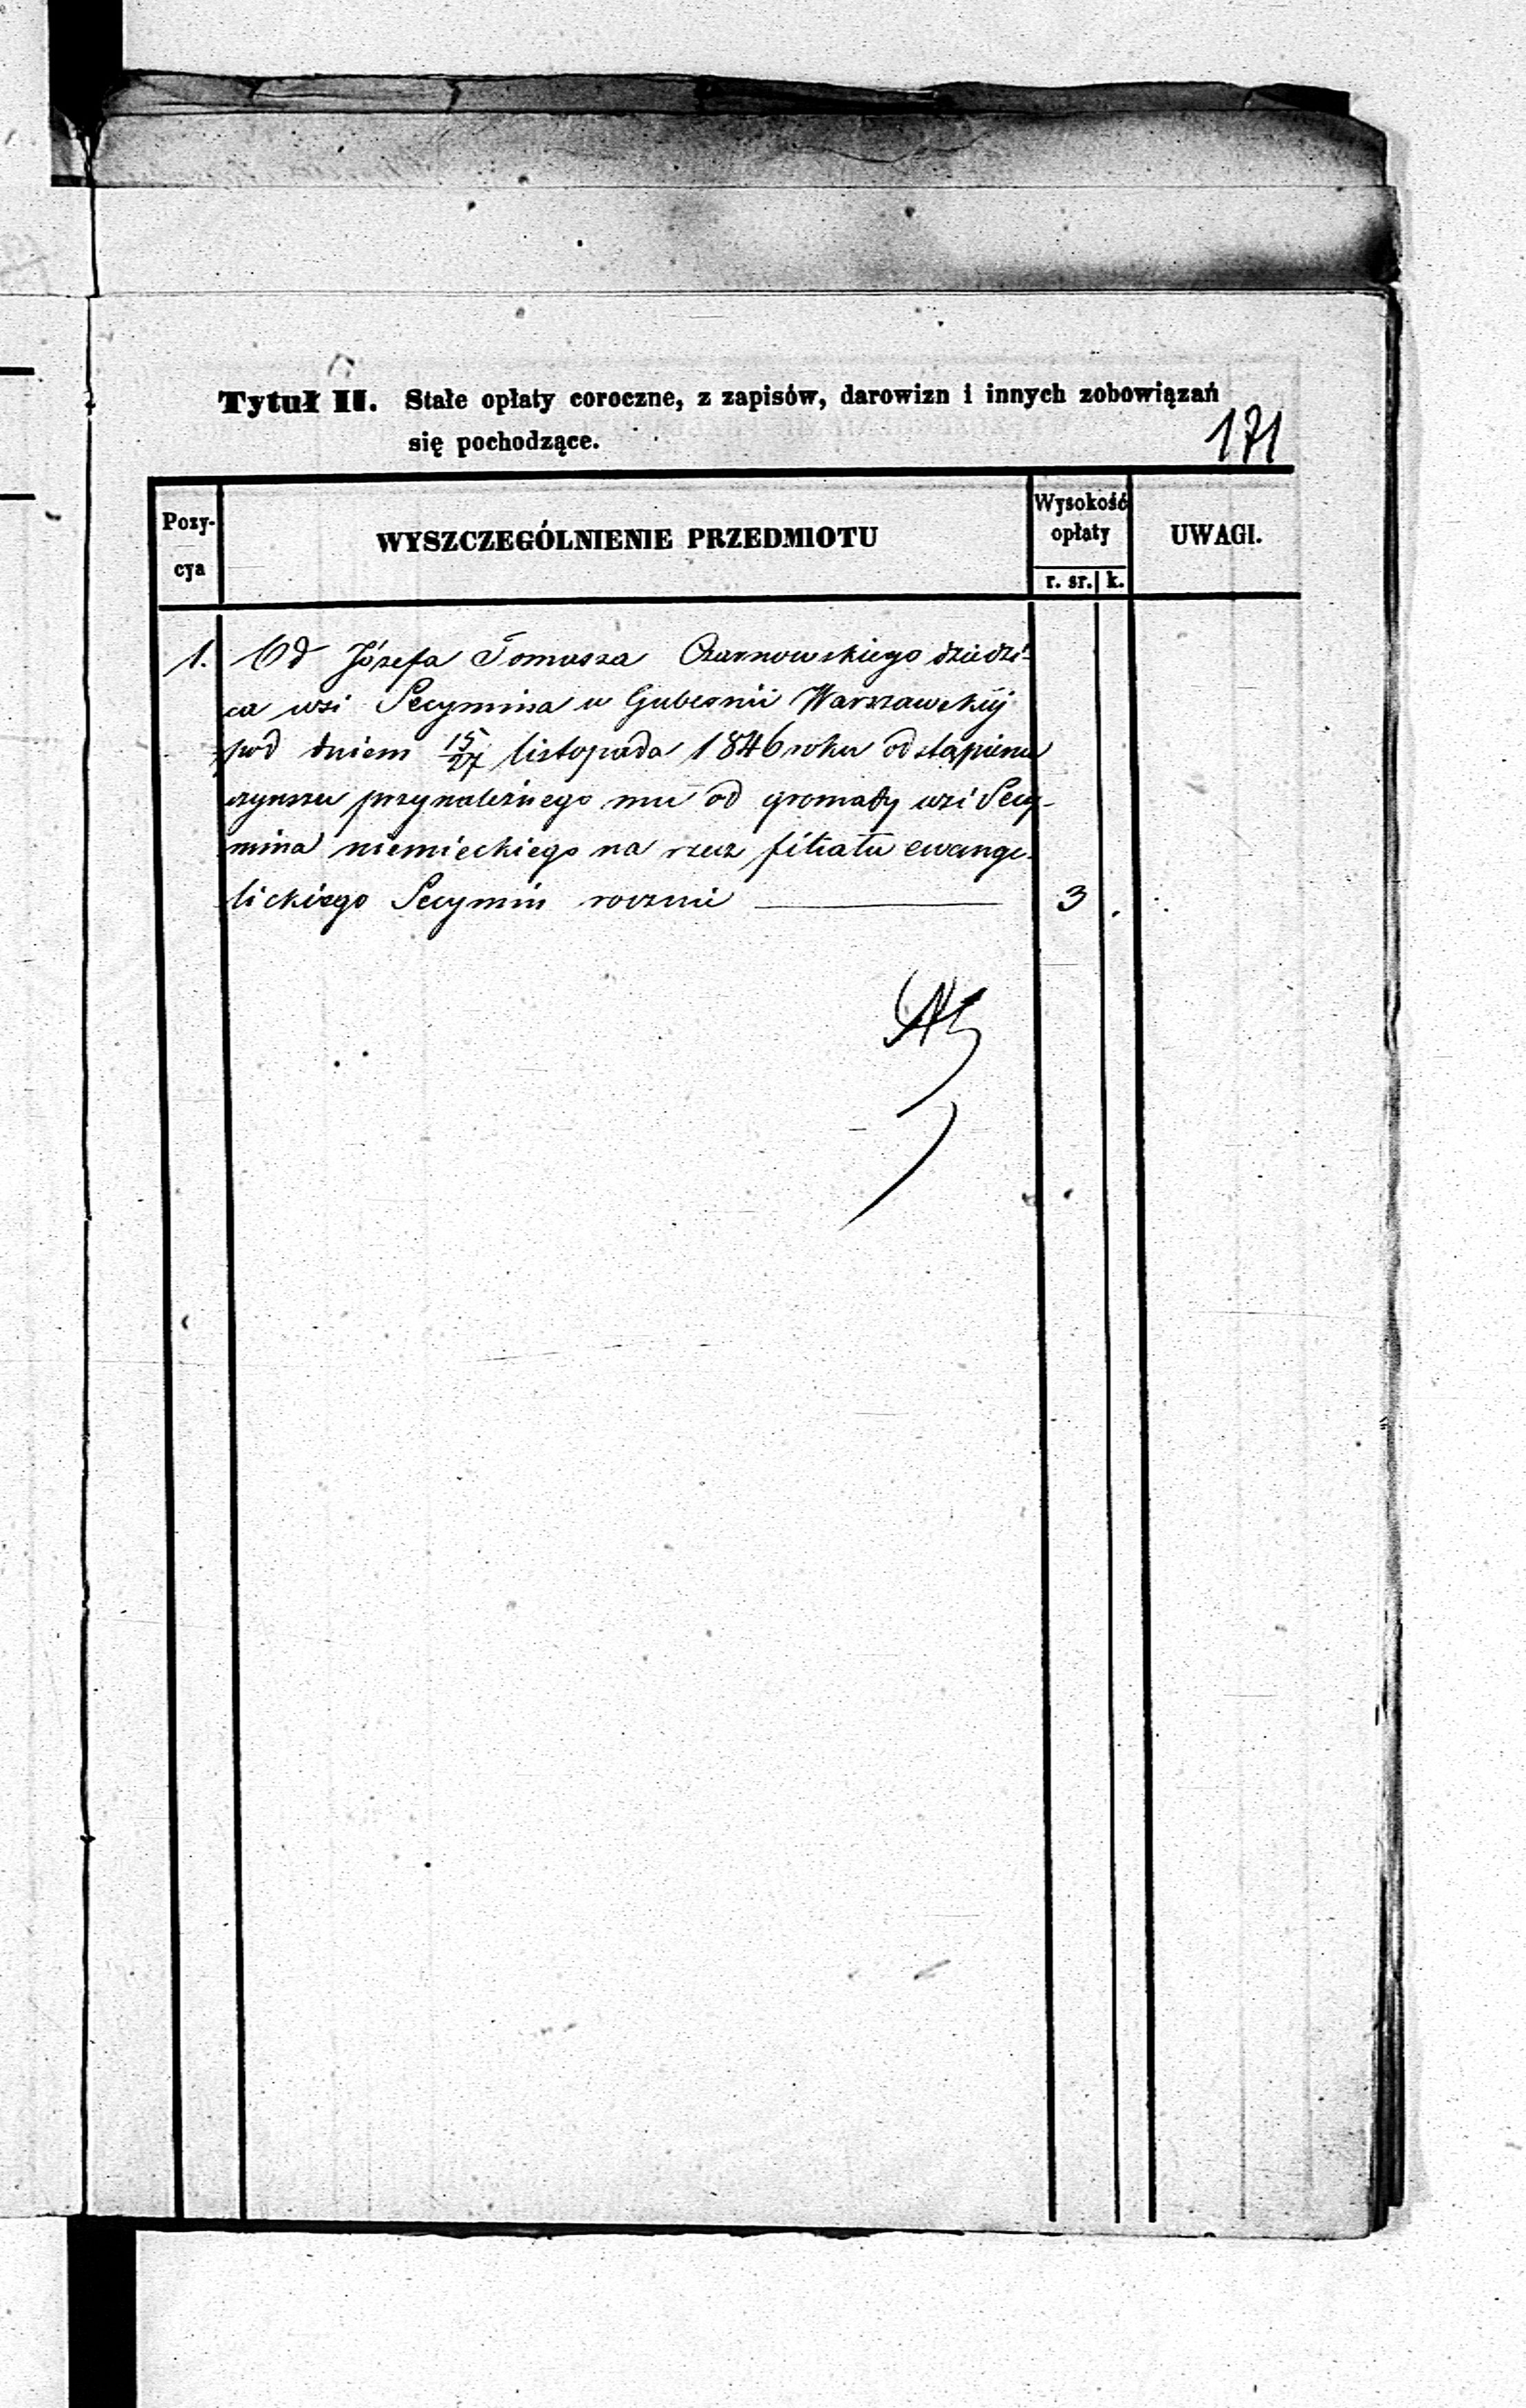 Tytuł II. Stałe opłaty coroczne, z zapisów, darowizn i innych zobowiązań
się pochodzące.
171
Pozy-
cya
WYSZCZEGÓLNIENIE PRZEDMIOTU
Wysokość
opłaty
r. sr. k.
UWAGI.
1. Od Józefa Tomasza Czarnowskiego dziedzi-
ca wsi Secymina w Gubernii Warszawskiij
pod dniem 15/27 listopada 1846 roku odstąpienie
czynszu przynależnego mu od gromady wsi Secy-
mina niemieckiego na rzecz filiału ewange-
lickiego Secymin rocznie 3 .